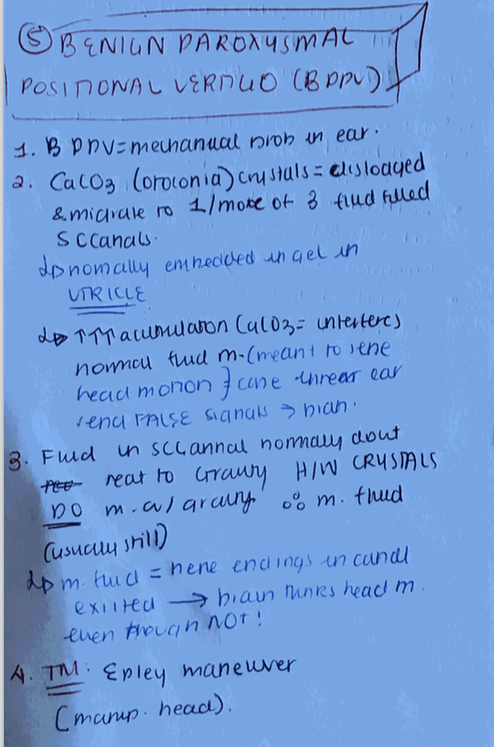 ⑤ BENIGN PAROXYSMAL
POSITIONAL VERTIGO (BPPV)
1. BPPV = mechanical prob in ear.
2. CaCO3 (otoconia) crystals = dislodged
& migrate to 1/more of 3 fluid filled
SCcanals.
↳ normally embedded in gel in
UTRICLE
↳ ↑↑↑ acumulation CaCO3 = interferes
normal fluid m. (meant to sene
head motion } cause inner ear
send FALSE signals → brain.
3. Fluid in SCCannal normally dont
reat to Gravity H/W CRYSTALS
DO m. w/ gravity ∴ m. fluid
(usually still)
↳ m. fluid = nerve endings in canal
exiited → brain thinks head m.
even though NOT!
4. TM: Epley maneuver
(manip. head).